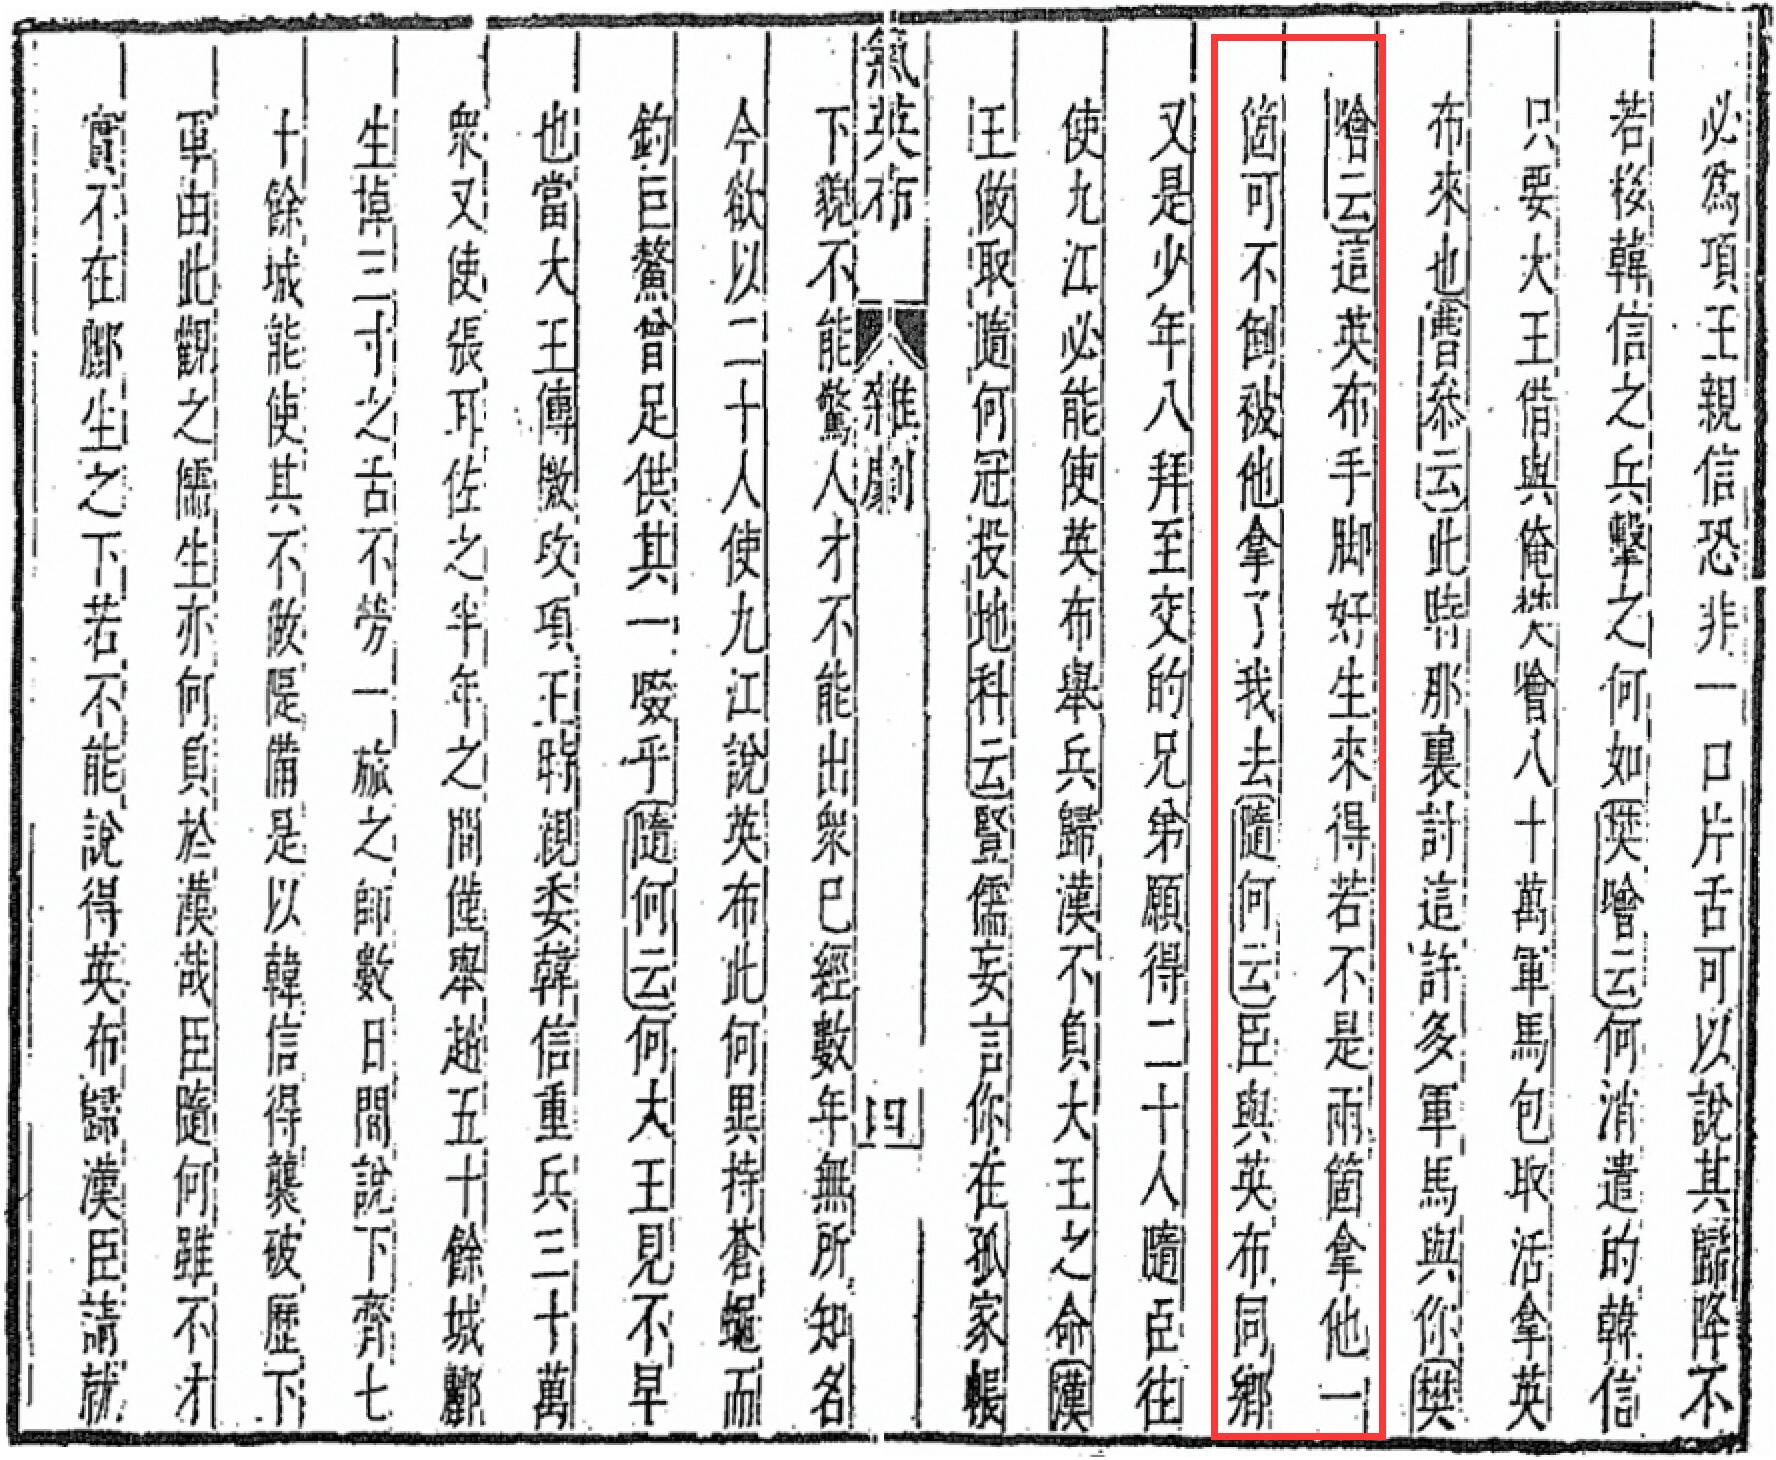 必為項王親信恐非一口片舌可以說其歸降不
若撥韓信之兵擊之何如樊噲云何消遣的韓信
只要大王借與俺樊噲八十萬軍馬包取活拿英
布來也曹參云此時那裏討這許多軍馬與你樊
噲云這英布手脚好生來得若不是兩箇拿他一
箇可不倒被他拿了我去隨何云臣與英布同鄉
又是少年八拜至交的兄弟願得二十人隨臣往
使九江必能使英布舉兵歸漢不負大王之命漢
王做取隨何冠投地科云豎儒妄言你在孤家帳
氣英布 雜劇 四
下貌不能驚人才不能出衆已經數年無所知名
今欲以二十人使九江說英布此何異持蒼蠅而
釣巨鰲曾足供其一啜乎隨何云何大王見不早
也當大王傳檄攻項王時親委韓信重兵三十萬
衆又使張耳佐之半年之間僅舉趙五十餘城酈
生掉三寸之舌不勞一旅之師數日間說下齊七
十餘城能使其不做隄備是以韓信得襲破歷下
軍由此觀之儒生亦何負於漢哉臣隨何雖不才
實不在酈生之下若不能說得英布歸漢臣請就